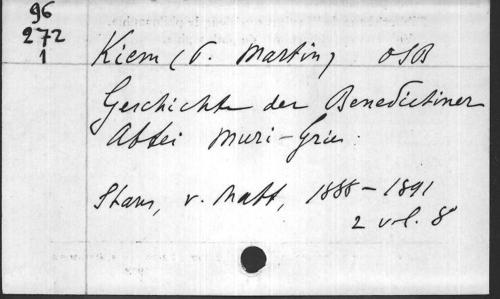 96
272
1
Kiem (P. Martin) OSB
Geschichte der Benedictiner
Abtei Muri-Gries.
Stans, v. Matt, 1888-1891
2 vol. 8°